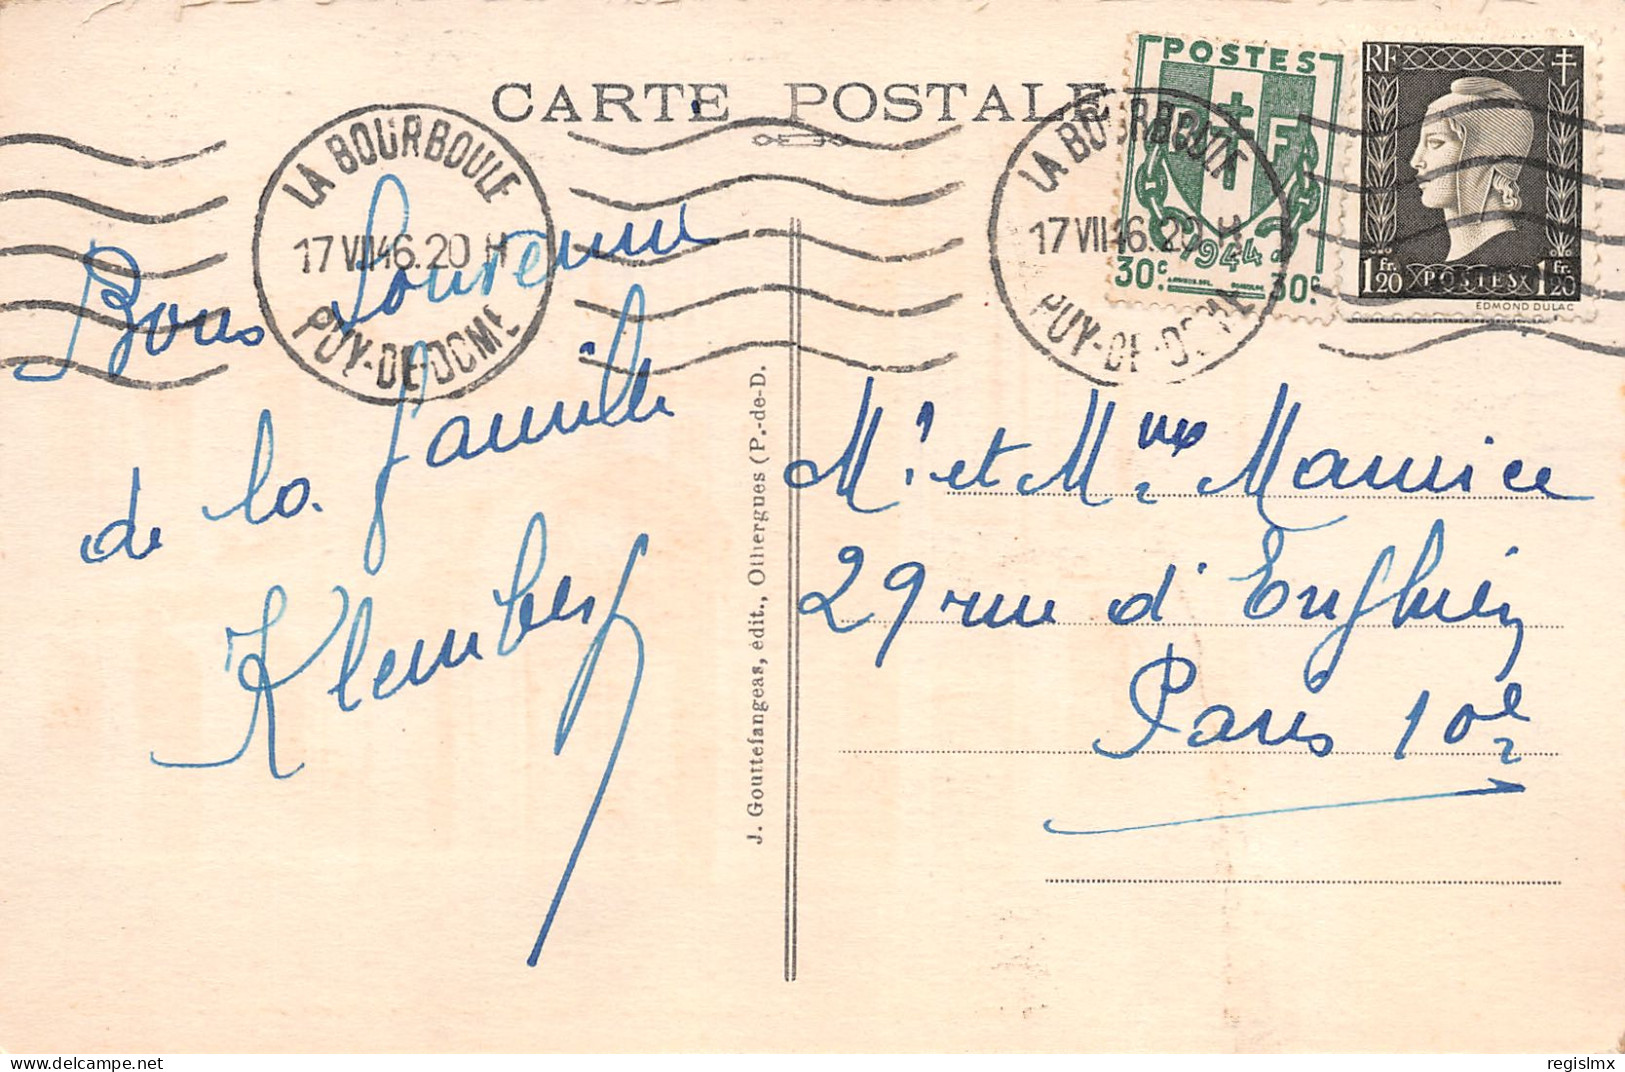 CARTE POSTALE
LA BOURBOULE
17 VII 46. 20 H
PUY-DE-DOME
LA BOURBOULE
17 VII 46. 20 H
PUY-DE-DOME
POSTES
RF
1944
30c. 30c.
RF
1Fr.20 POSTES 1Fr.20
EDMOND DULAC
Bons Souvenirs
de la famille
J. Gouttefangeas, édit., Olliergues (P.-de-D.
Mr et Mme Maurice
29 rue d'Enghien
Paris 10e
regislmx